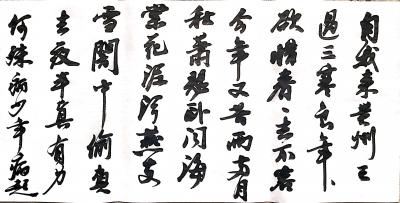 自我来黄州已
過三寒食年々
欲惜春々去不容
今年又苦雨兩月
秋蕭瑟卧聞海
棠花泥污燕支
雪闇中偷負
去夜半真有力
何殊病少年病起